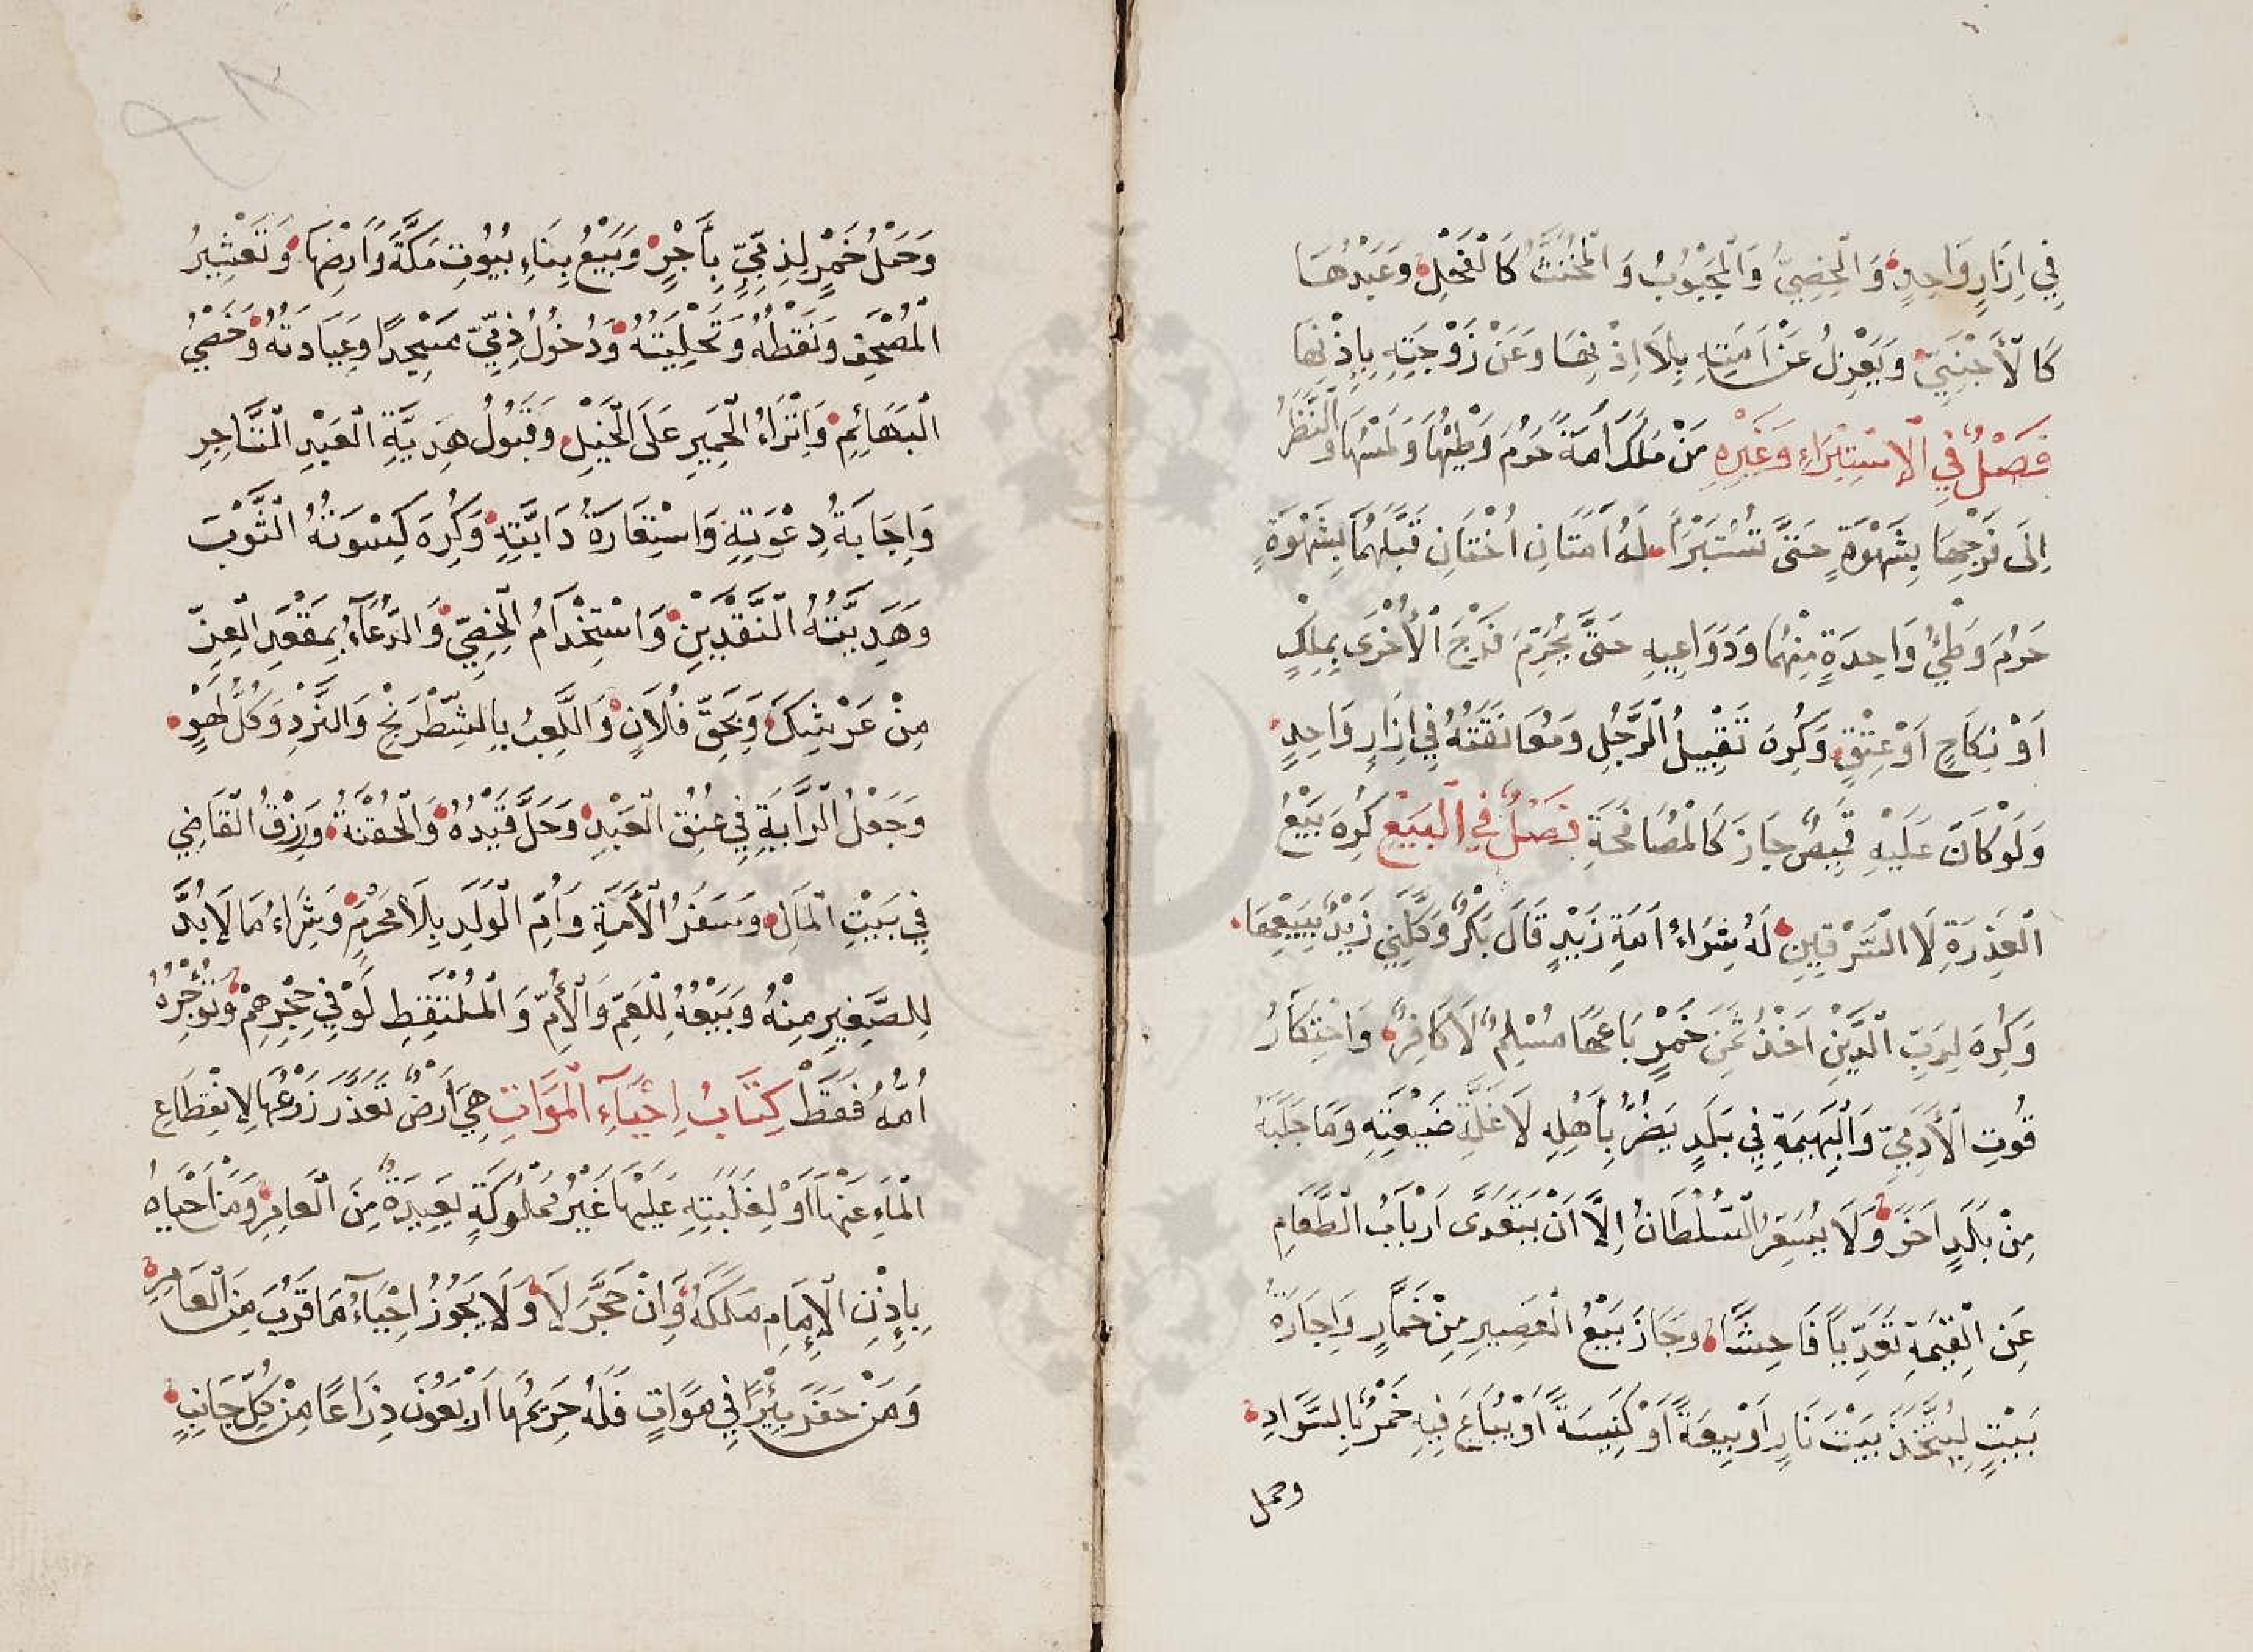 فِي اِزَارٍ وَاحِدٍ وَالْخَصِيُّ وَالْمَجْبُوْبُ وَالْمُخَنَّثُ كَالْفَحْلِ وَعَبْدُهَا
كَالْأَجْنَبِيِّ وَيَعْزِلُ عَنْ اَمَتِهِ بِلَا اِذْنِهَا وَعَنْ زَوْجَتِهِ بِاِذْنِهَا
فَصْلٌ فِي الْاِسْتِبْرَاءِ وَغَيْرِهِ مَنْ مَلَكَ اَمَةً حَرُمَ وَطْئُهَا وَلَمْسُهَا وَالنَّظَرُ
اِلَى فَرْجِهَا بِشَهْوَةٍ حَتَّى تَسْتَبْرَأَ لَهُ اَمَتَانِ اُخْتَانِ قَبَّلَهُمَا بِشَهْوَةٍ
حَرُمَ وَطْئُ وَاحِدَةٍ مِنْهُمَا وَدَوَاعِيهِ حَتَّى يُحَرِّمَ فَرْجَ الْأُخْرَى بِمِلْكٍ
اَوْ نِكَاحٍ اَوْ عِتْقٍ وَكُرِهَ تَقْبِيلُ الرَّجُلِ وَمُعَانَقَتُهُ فِي اِزَارٍ وَاحِدٍ
وَلَوْ كَانَ عَلَيْهِ قَمِيصٌ جَازَ كَالْمُصَافَحَةِ فَصْلٌ فِي الْبَيْعِ كُرِهَ بَيْعُ
الْعَذِرَةِ لَا السِّرْقِينِ لَهُ شِرَاءُ اَمَةِ زَيْدٍ قَالَ بَكْرٌ وَكَّلَنِي زَيْدٌ بِبَيْعِهَا
وَكُرِهَ لِرَبِّ الدَّيْنِ اَخْذُ ثَمَنِ خَمْرٍ بَاعَهَا مُسْلِمٌ لَا كَافِرٌ وَاحْتِكَارُ
قُوتِ الْأَدَمِيِّ وَالْبَهِيمَةِ فِي بَلَدٍ يَضُرُّ بِأَهْلِهِ لَا غَلَّةَ ضَيْعَتِهِ وَمَا جَلَبَهُ
مِنْ بَلَدٍ اَخَرَ وَلَا يُسَعِّرُ السُّلْطَانُ اِلَّا اَنْ يَتَعَدَّى اَرْبَابُ الطَّعَامِ
عَنِ الْقِيمَةِ تَعَدِّيًا فَاحِشًا وَجَازَ بَيْعُ الْعَصِيرِ مِنْ خَمَّارٍ وَاِجَارَةُ
بَيْتٍ لِيُتَّخَذَ بَيْتَ نَارٍ اَوْ بِيعَةً اَوْ كَنِيسَةً اَوْ يُبَاعَ فِيهِ خَمْرٌ بِالسَّوَادِ
وحمل
وَحَمْلُ خَمْرٍ لِذِمِّيٍّ بِأَجْرٍ وَبَيْعُ بِنَاءِ بُيُوْتِ مَكَّةَ وَاَرْضِهَا وَتَعْشِيرُ
الْمُصْحَفِ وَنَقْطُهُ وَتَحْلِيَتُهُ وَدُخُولُ ذِمِّيٍّ مَسْجِدًا وَعِيَادَتُهُ وَخَصْيُ
الْبَهَائِمِ وَاِنْزَاءُ الْحَمِيرِ عَلَى الْخَيْلِ وَقَبُولُ هَدِيَّةِ الْعَبْدِ التَّاجِرِ
وَاِجَابَةُ دِعْوَتِهِ وَاسْتِعَارَةُ دَابَّتِهِ وَكُرِهَ كِسْوَتُهُ الثَّوْبَ
وَهَدِيَّتُهُ النَّقْدَيْنِ وَاسْتِخْدَامُ الْخَصِيِّ وَالدُّعَآءُ بِمَقْعَدِ الْعِزِّ
مِنْ عَرْشِكَ وَبِحَقِّ فُلَانٍ وَاللَّعِبُ بِالشِّطْرَنْجِ وَالنَّرْدِ وَكُلُّ لَهْوٍ
وَجَعْلُ الرَّايَةِ فِي عُنُقِ الْعَبْدِ وَحَلَّ قَيْدُهُ وَالْحُقْنَةُ وَرِزْقُ الْقَاضِي
فِي بَيْتِ الْمَالِ وَسَفَرُ الْأَمَةِ وَاُمِّ الْوَلَدِ بِلَا مَحْرَمٍ وَشِرَاءُ مَا لَا بُدَّ
لِلصَّغِيرِ مِنْهُ وَبَيْعُهُ لِلْعَمِّ وَالْأُمِّ وَالْمُلْتَقِطِ لَوْ فِي حِجْرِهِمْ وَتُؤْجِرُهُ
اُمُّهُ فَقَطْ كِتَابُ اِحْيَآءِ الْمَوَاتِ هِيَ اَرْضٌ تَعَذَّرَ زَرْعُهَا لِانْقِطَاعِ
الْمَاءِ عَنْهَا اَوْ لِغَلَبَتِهِ عَلَيْهَا غَيْرُ مَمْلُوكَةٍ بَعِيدَةٌ مِنَ الْعَامِرِ وَمَنْ اَحْيَاهُ
بِإِذْنِ الْإِمَامِ مَلَكَهُ وَاِنْ حَجَّرَ لَا وَلَا يَجُوزُ اِحْيَآءُ مَا قَرُبَ مِنَ الْعَامِرِ
وَمَنْ حَفَرَ بِئْرًا فِي مَوَاتٍ فَلَهُ حَرِيمُهَا اَرْبَعُونَ ذِرَاعًا مِنْ كُلِّ جَانِبٍ